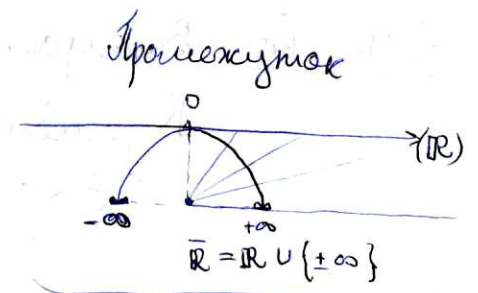 Промежуток
0
(ℝ)
-∞ +∞
ℝ̅ = ℝ ∪ {± ∞}